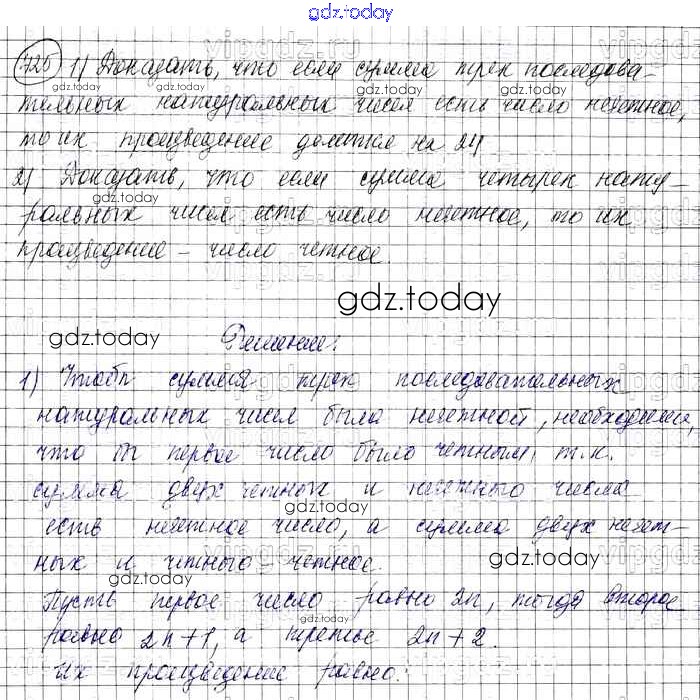 gdz.today
725 1) Доказать, что если сумма трех последова-
тельных натуральных чисел есть число нечетное,
то их произведение делится на 24
2) Доказать, что если сумма четырех нату-
ральных чисел есть число нечетное, то их
произведение – число четное.
gdz.today
gdz.today
Решение:
1) Чтобы сумма трех последовательных
натуральных чисел была нечетной, необходимо,
что бы первое число было четным, т.к.
сумма двух четных и нечетного числа
есть нечетное число, а сумма двух нечет-
ных и четного четное.
gdz.today
Пусть первое число равно 2n, тогда второе
равно 2n+1, а третье 2n+2.
их произведение равно: